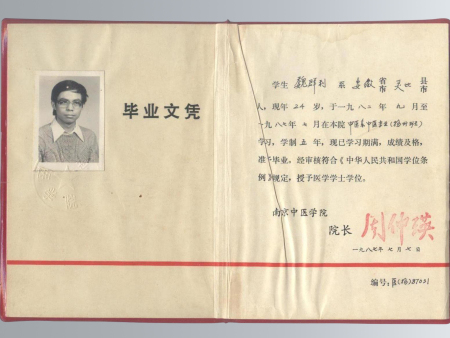 毕业文凭
学生 系 安徽 省市 县市
人，现年 24 岁，于一九八二年九月至
一九八七年七月在本院中医系中医专业
学习，学制五年，现已学习期满，成绩及格，
准予毕业。经审核符合《中华人民共和国学位条
例》规定，授予医学学士学位。
南京中医学院
院长 周仲瑛
一九八七年七月七日
编号：医(扬)87031